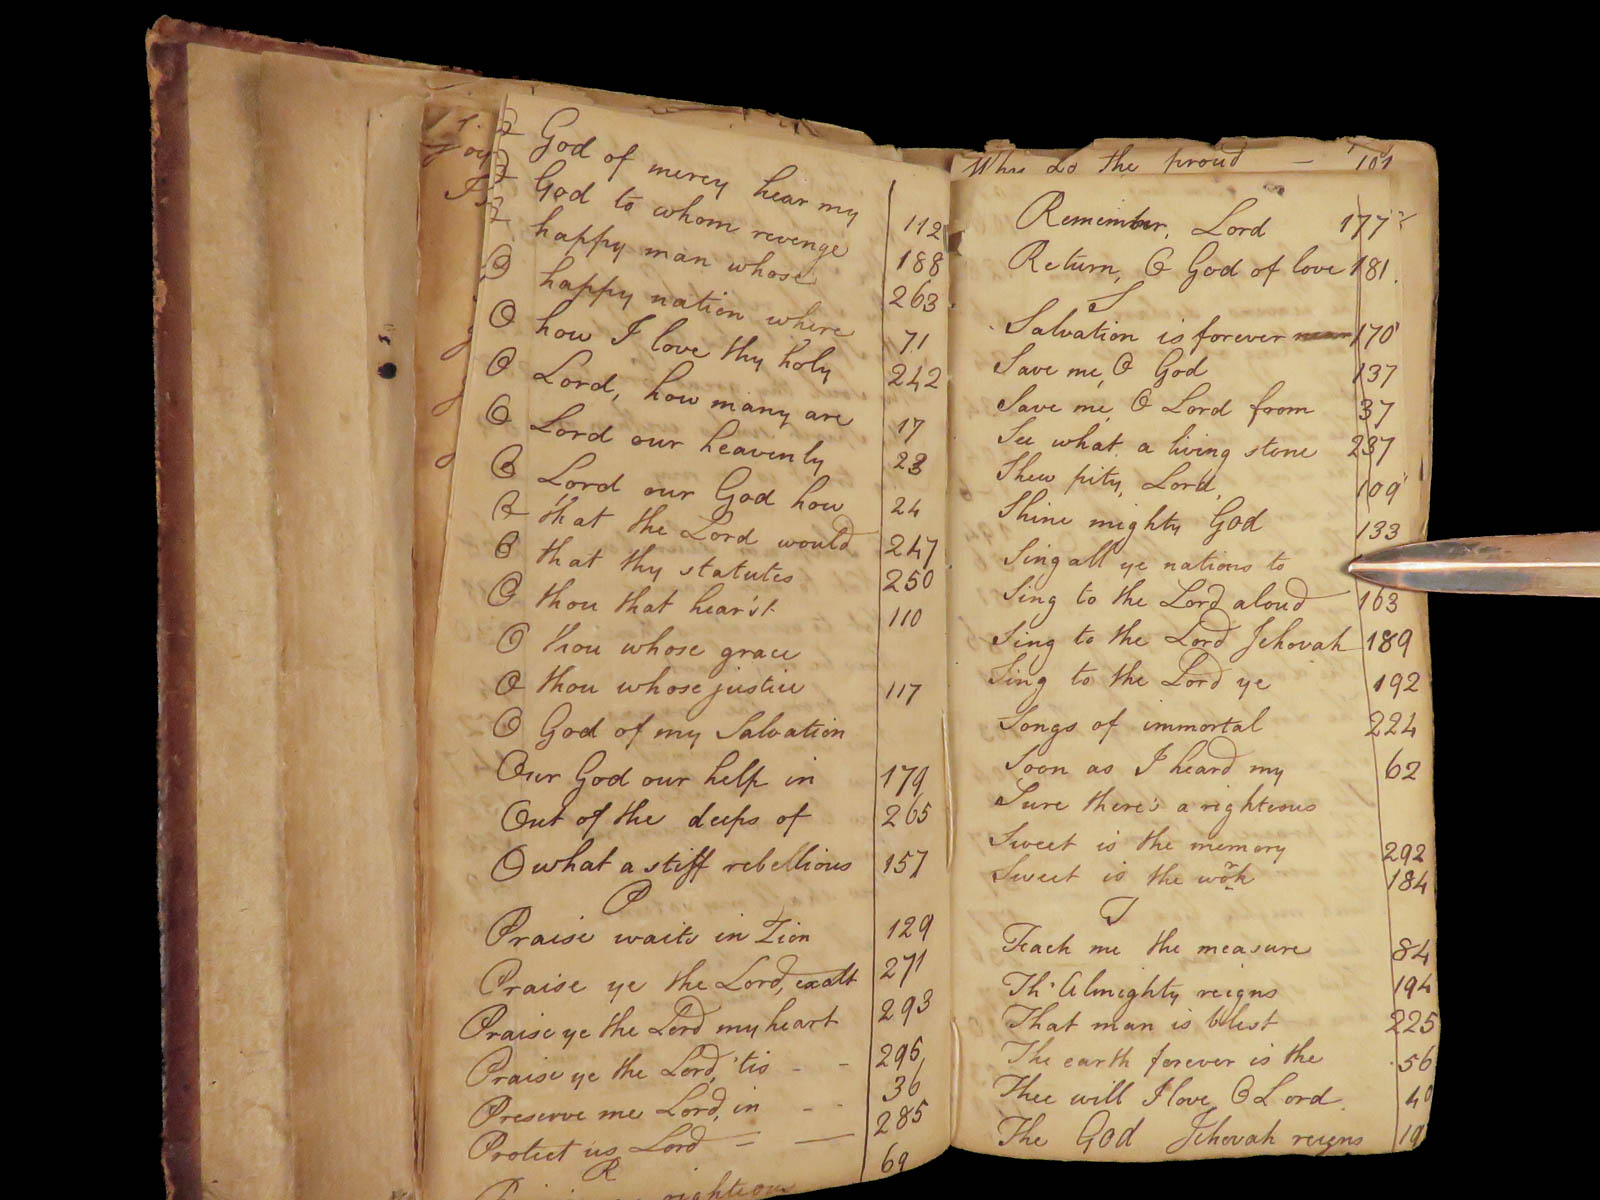 O God of mercy hear my 112
O God to whom revenge 188
O happy man whose 263
O happy nation where 71
O how I love thy holy 242
O Lord, how many are 17
O Lord our heavenly 23
O Lord our God how 24
O that the Lord would 247
O that thy statutes 250
O thou that hear'st 110
O thou whose grace
O thou whose justice 117
O God of my Salvation
Our God our help in 179
Out of the deeps of 265
O what a stiff rebellious 157
P
Praise waits in Zion 129
Praise ye the Lord, exalt 271
Praise ye the Lord my heart 293
Praise ye the Lord, 'tis - - 295
Preserve me Lord, in - - 36
Protect us Lord 285
R 69
righteous
Why do the proud — 101
Remember, Lord 177
Return, O God of love 181
S
Salvation is forever 170
Save me, O God 137
Save me, O Lord from 37
See what a living stone 237
Shew pity, Lord, 109
Shine mighty God 133
Sing all ye nations to
Sing to the Lord aloud 163
Sing to the Lord Jehovah 189
Sing to the Lord ye 192
Songs of immortal 224
Soon as I heard my 62
Sure there's a righteous
Sweet is the memory 292
Sweet is the work 184
T
Teach me the measure 84
Th' Almighty reigns 194
That man is blest 225
The earth forever is the 56
Thee will I love, O Lord 40
The God Jehovah reigns 19